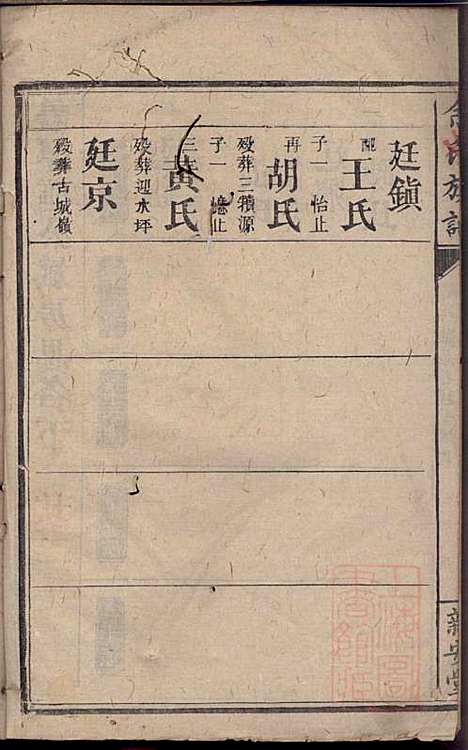 氏族譜
新安堂
廷鎮
配王氏
子一 怡止
再胡氏
歿葬三犢源
子一 憶止
三黄氏
歿葬迎水坪
廷京
歿葬古城嶺